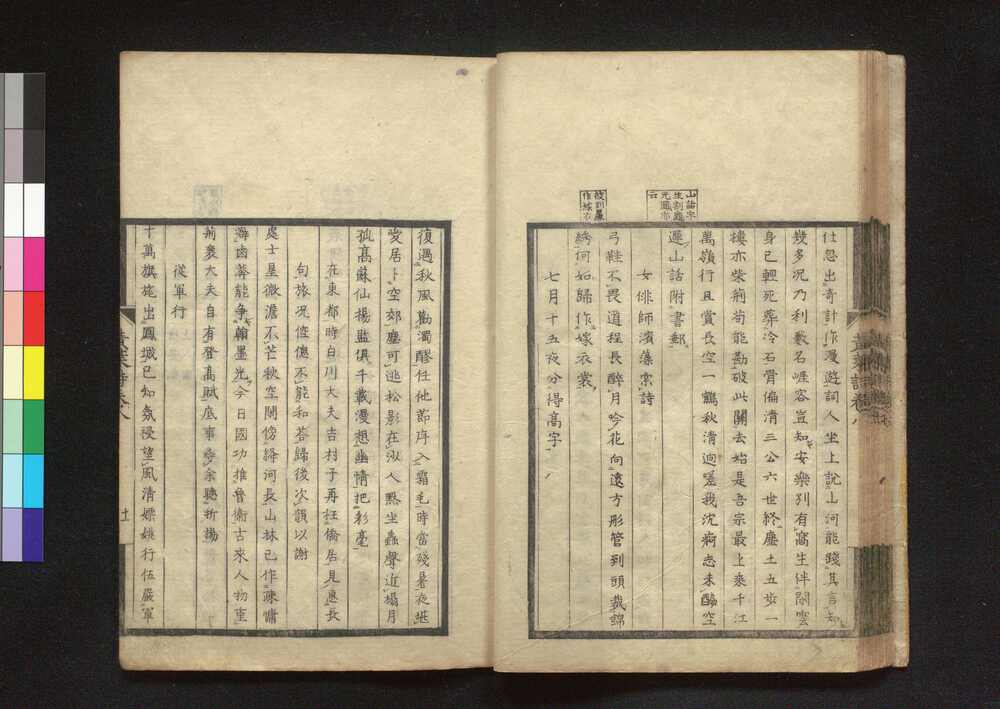 仕忽出奇計作漫遊詞人坐上說山河能踐其言知
幾多況乃利數名崕容豈知安樂別有窩生伴閒雲
身已輕死葬冷石骨偏清三公六世終塵土五步一
樓亦柴荊苟能勘破此關去始是吾宗最上乘千江
萬嶺行且賞長空一鶴秋清迥嗟我沈痾志未酬空
遲山話附書郵
女俳師濱藻索詩
弓鞋不畏道程長醉月吟花向遠方彤管到頭裁錦
綉何如歸作嫁衣裳
七月十五夜分得高字
復遇秋風勸濁醪任他節序入霜毛時當殘暑夜堪
愛居卜空郊塵可逃松影在沙人點坐蟲聲近榻月
孤高蘇仙揚監俱千載漫想幽情把彩毫
在東都時白川大夫吉村子再枉僑居見惠長
句旅況倥傯不能和荅歸後次韻以謝
處士星微澹不芒秋空鬧傍絳河長山林已作陳慵
齒莽能爭翰墨光今日國功推魯衛古來人物重
荊襄大夫自有登高賦底事尋余聽折揚
從軍行
十萬旗旄出鳳城已知氛祲望風清嫖姚行伍嚴軍